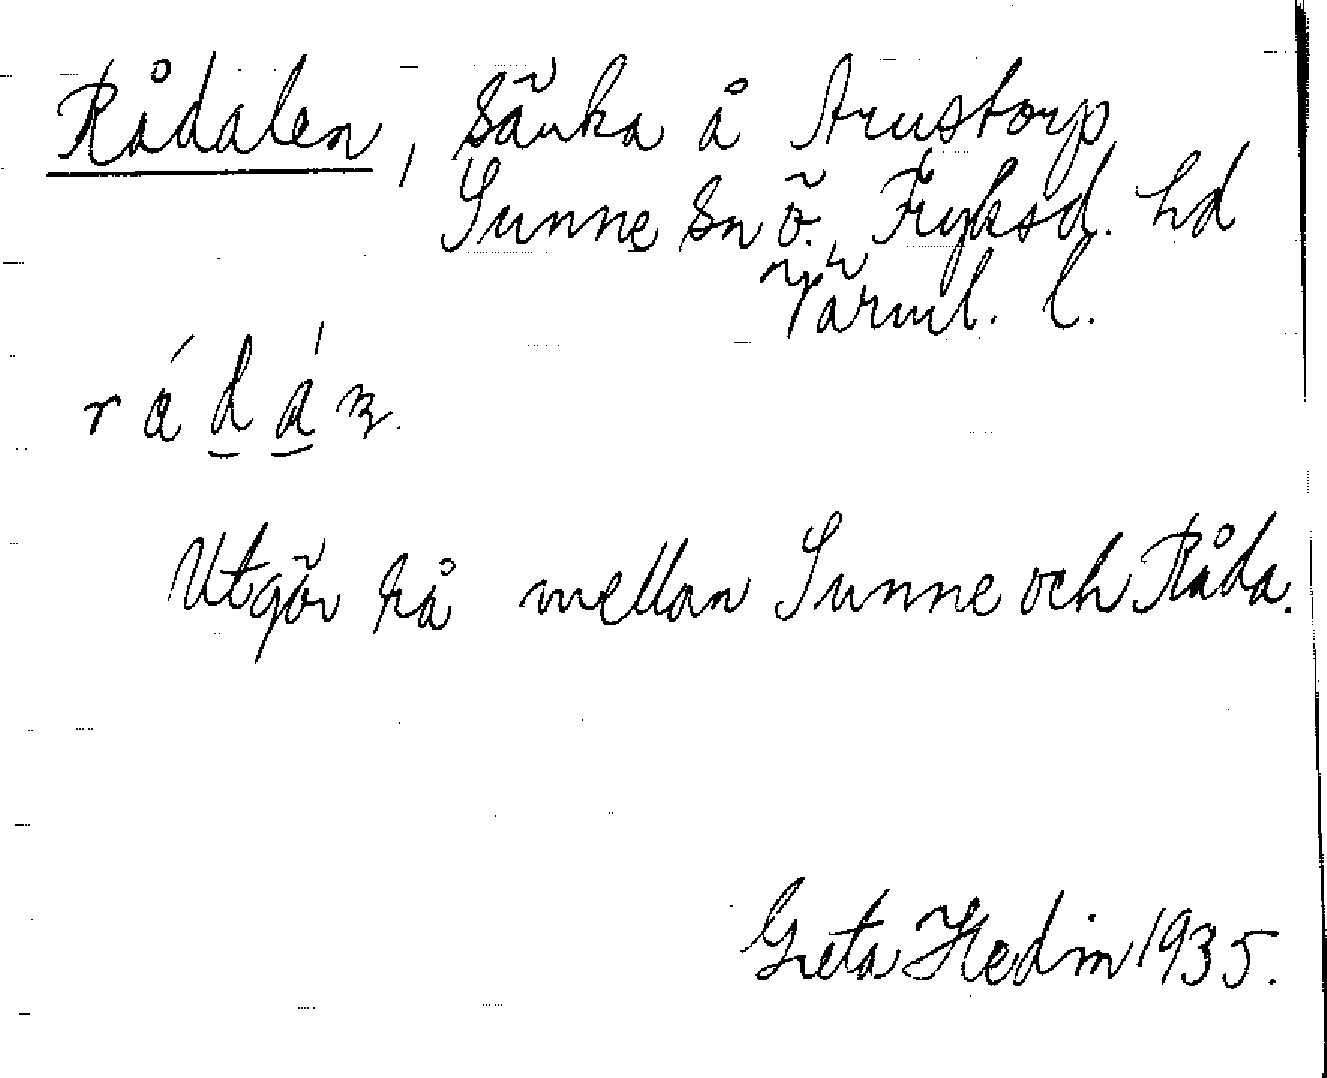 Rådalen, Sänka å Arnstorp
Sunne sn ö. Fryksd. hd
Värml. l.
Utgör rå mellan Sunne och Råda.
Greta Hedin 1935.